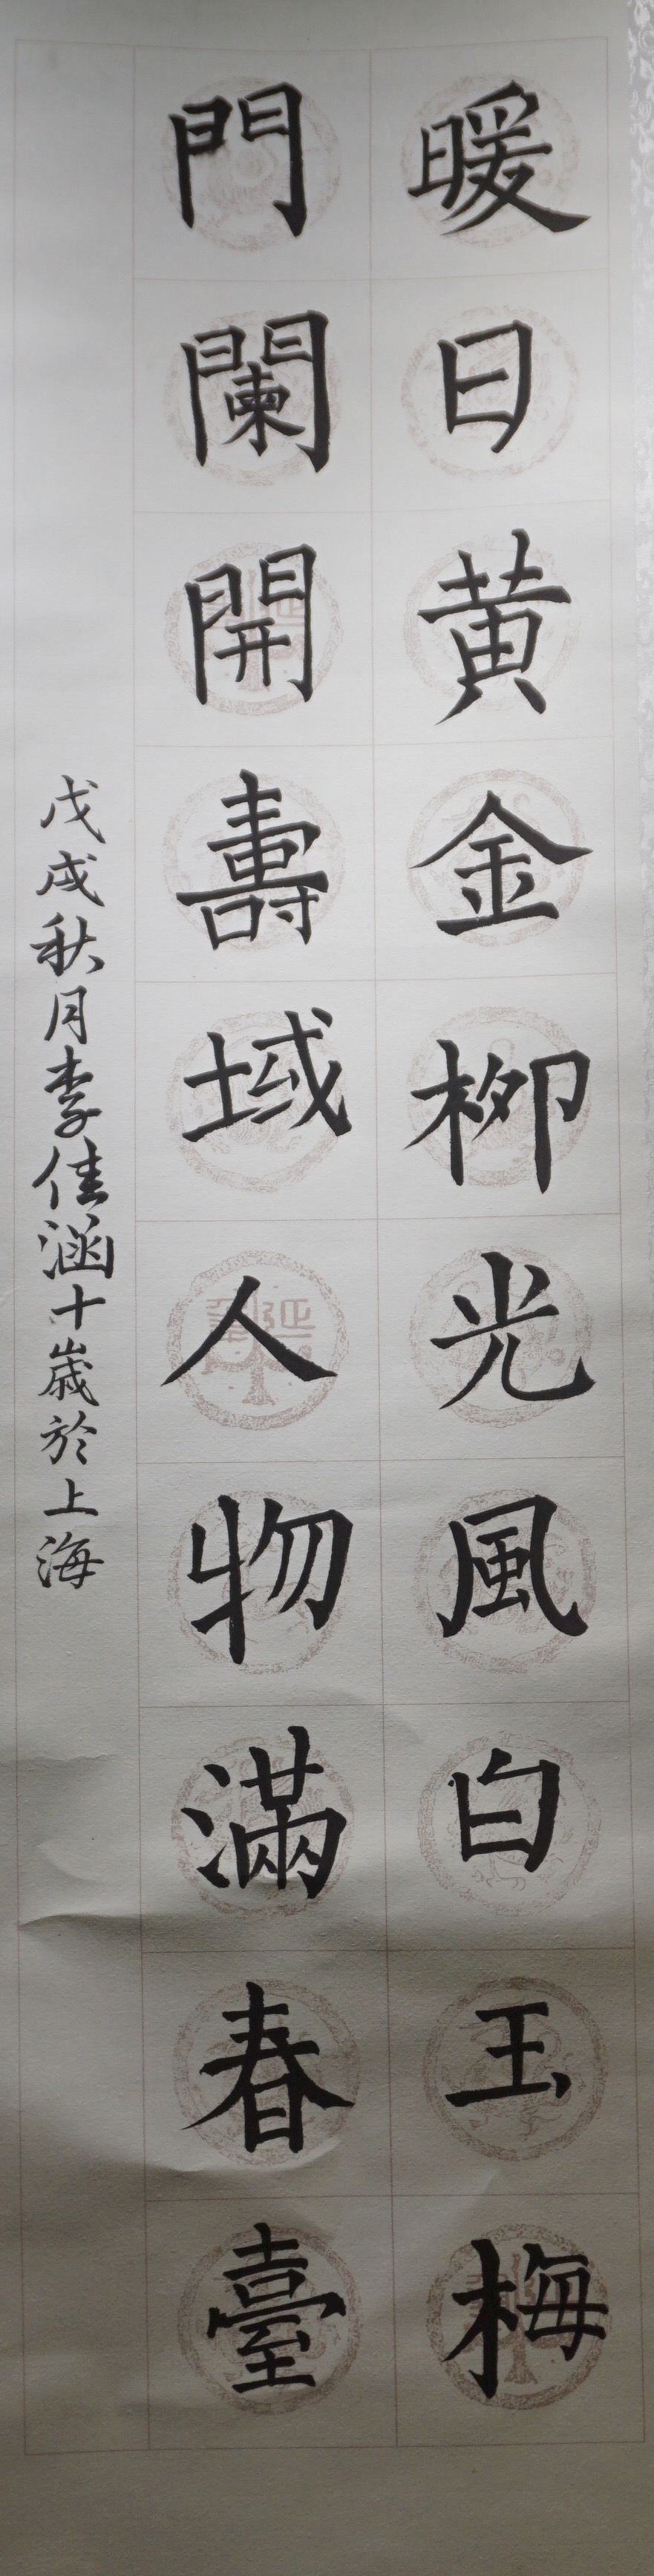 暖日黄金柳光風白玉梅
門闌開壽域人物滿春臺
戊戌秋月李佳涵十歲於上海